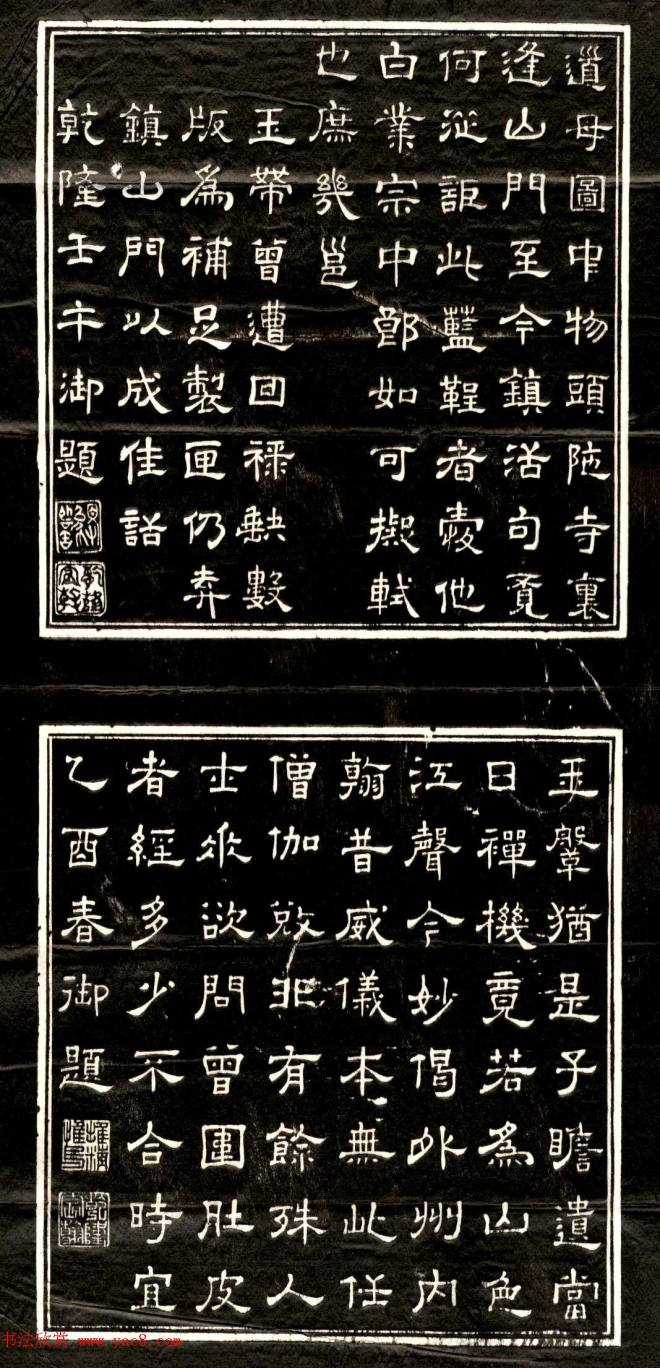 道母圖中物頭陀寺裏
逢山門至今鎮活句覓
何從詎此藍鞓者愛他
白業宗中郎如可擬軾
也庶幾邕
玉帶曾遭回祿缺數
版爲補足製匣仍弆
鎮山門以成佳話
乾隆壬午御題
玉鞶猶是子瞻遺當
日禪機竟若爲山色
江聲今妙偈外州內
翰昔威儀本無此任
僧伽敚非有餘殊人
士欲問曾圍肚皮
者經多少不合時宜
乙酉春御題
书法欣赏 www.yac8.com